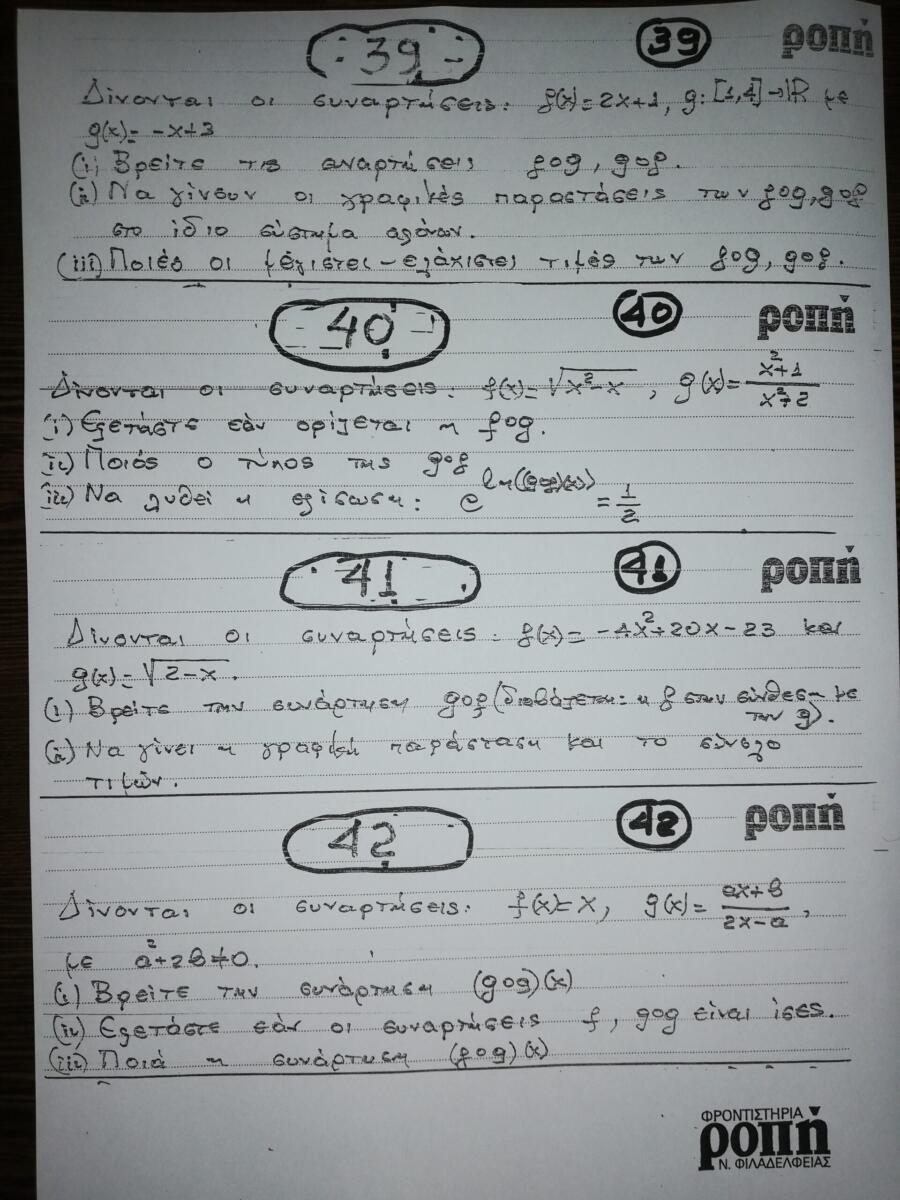 39 39 ροπή
Δίνονται οι συναρτήσεις: f(x)=2x+1, g:[1,4]→ℝ με
g(x)=-x+3
(i) Βρείτε τις συναρτήσεις fog, gof.
(ii) Να γίνουν οι γραφικές παραστάσεις των fog, gof
στο ίδιο σύστημα αξόνων.
(iii) Ποιές οι μέγιστες-ελάχιστες τιμές των fog, gof.
40 40 ροπή
Δίνονται οι συναρτήσεις: f(x)=√(x²-x), g(x)=(x²+1)/(x²+2)
(i) Εξετάστε εάν ορίζεται η fog.
(ii) Ποιός ο τύπος της gof
(iii) Να λυθεί η εξίσωση: e^ln((gog)(x))=1/2
41 41 ροπή
Δίνονται οι συναρτήσεις: f(x)=-4x²+20x-23 και
g(x)=√(2-x).
(i) Βρείτε την συνάρτηση gof (διαβάζεται: η f στην σύνθεση με
την g).
(ii) Να γίνει η γραφική παράσταση και το σύνολο
τιμών.
42 42 ροπή
Δίνονται οι συναρτήσεις: f(x)=x, g(x)=(αx+β)/(2x-α),
με α²+2β≠0.
(i) Βρείτε την συνάρτηση (gog)(x)
(ii) Εξετάστε εάν οι συναρτήσεις f, gog είναι ίσες.
(iii) Ποιά η συνάρτηση (fog)(x)
ΦΡΟΝΤΙΣΤΗΡΙΑ
ροπή
Ν. ΦΙΛΑΔΕΛΦΕΙΑΣ